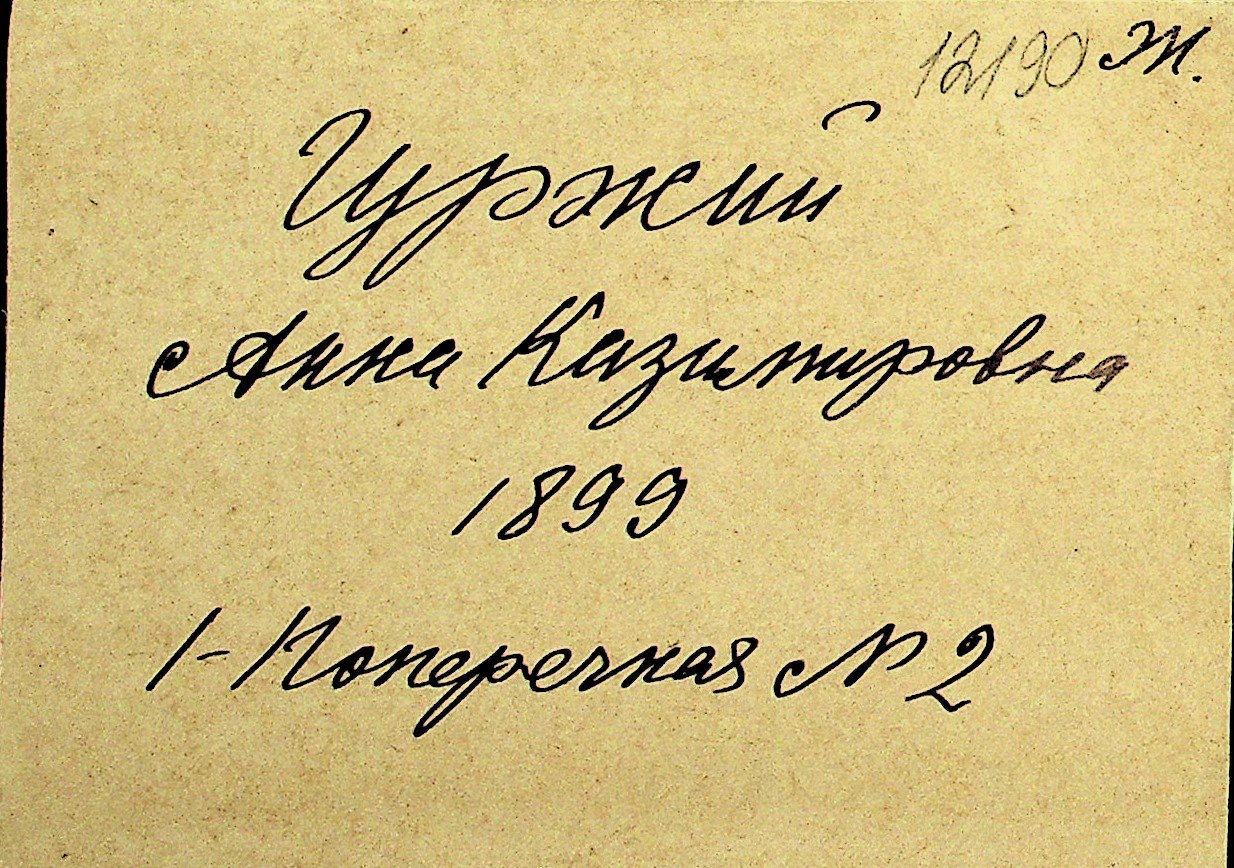 12190 Ж.
Цуржий
Анна Казимировна
1899
1-Поперечная № 2